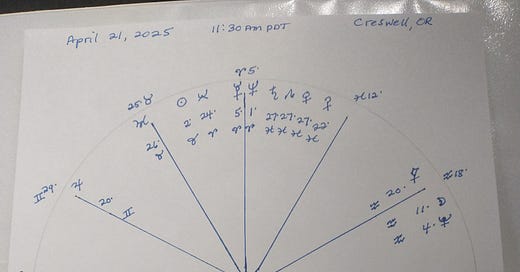 April 21, 2025 11:30 AM PDT Creswell, OR
♈5·
25·♉ ☉ ☿ ♆ ♄ ♀ ♓12·
2· 24· 5· 1· 27· 27· 27· 22·
26· ♉ ♈ ♈ ♈ ♓ ♓ ♓ ♓
♉
♊29· ♃ ♒18·
20· ♊ ♒ 20·
♒ 11· ☽
♒ 4·